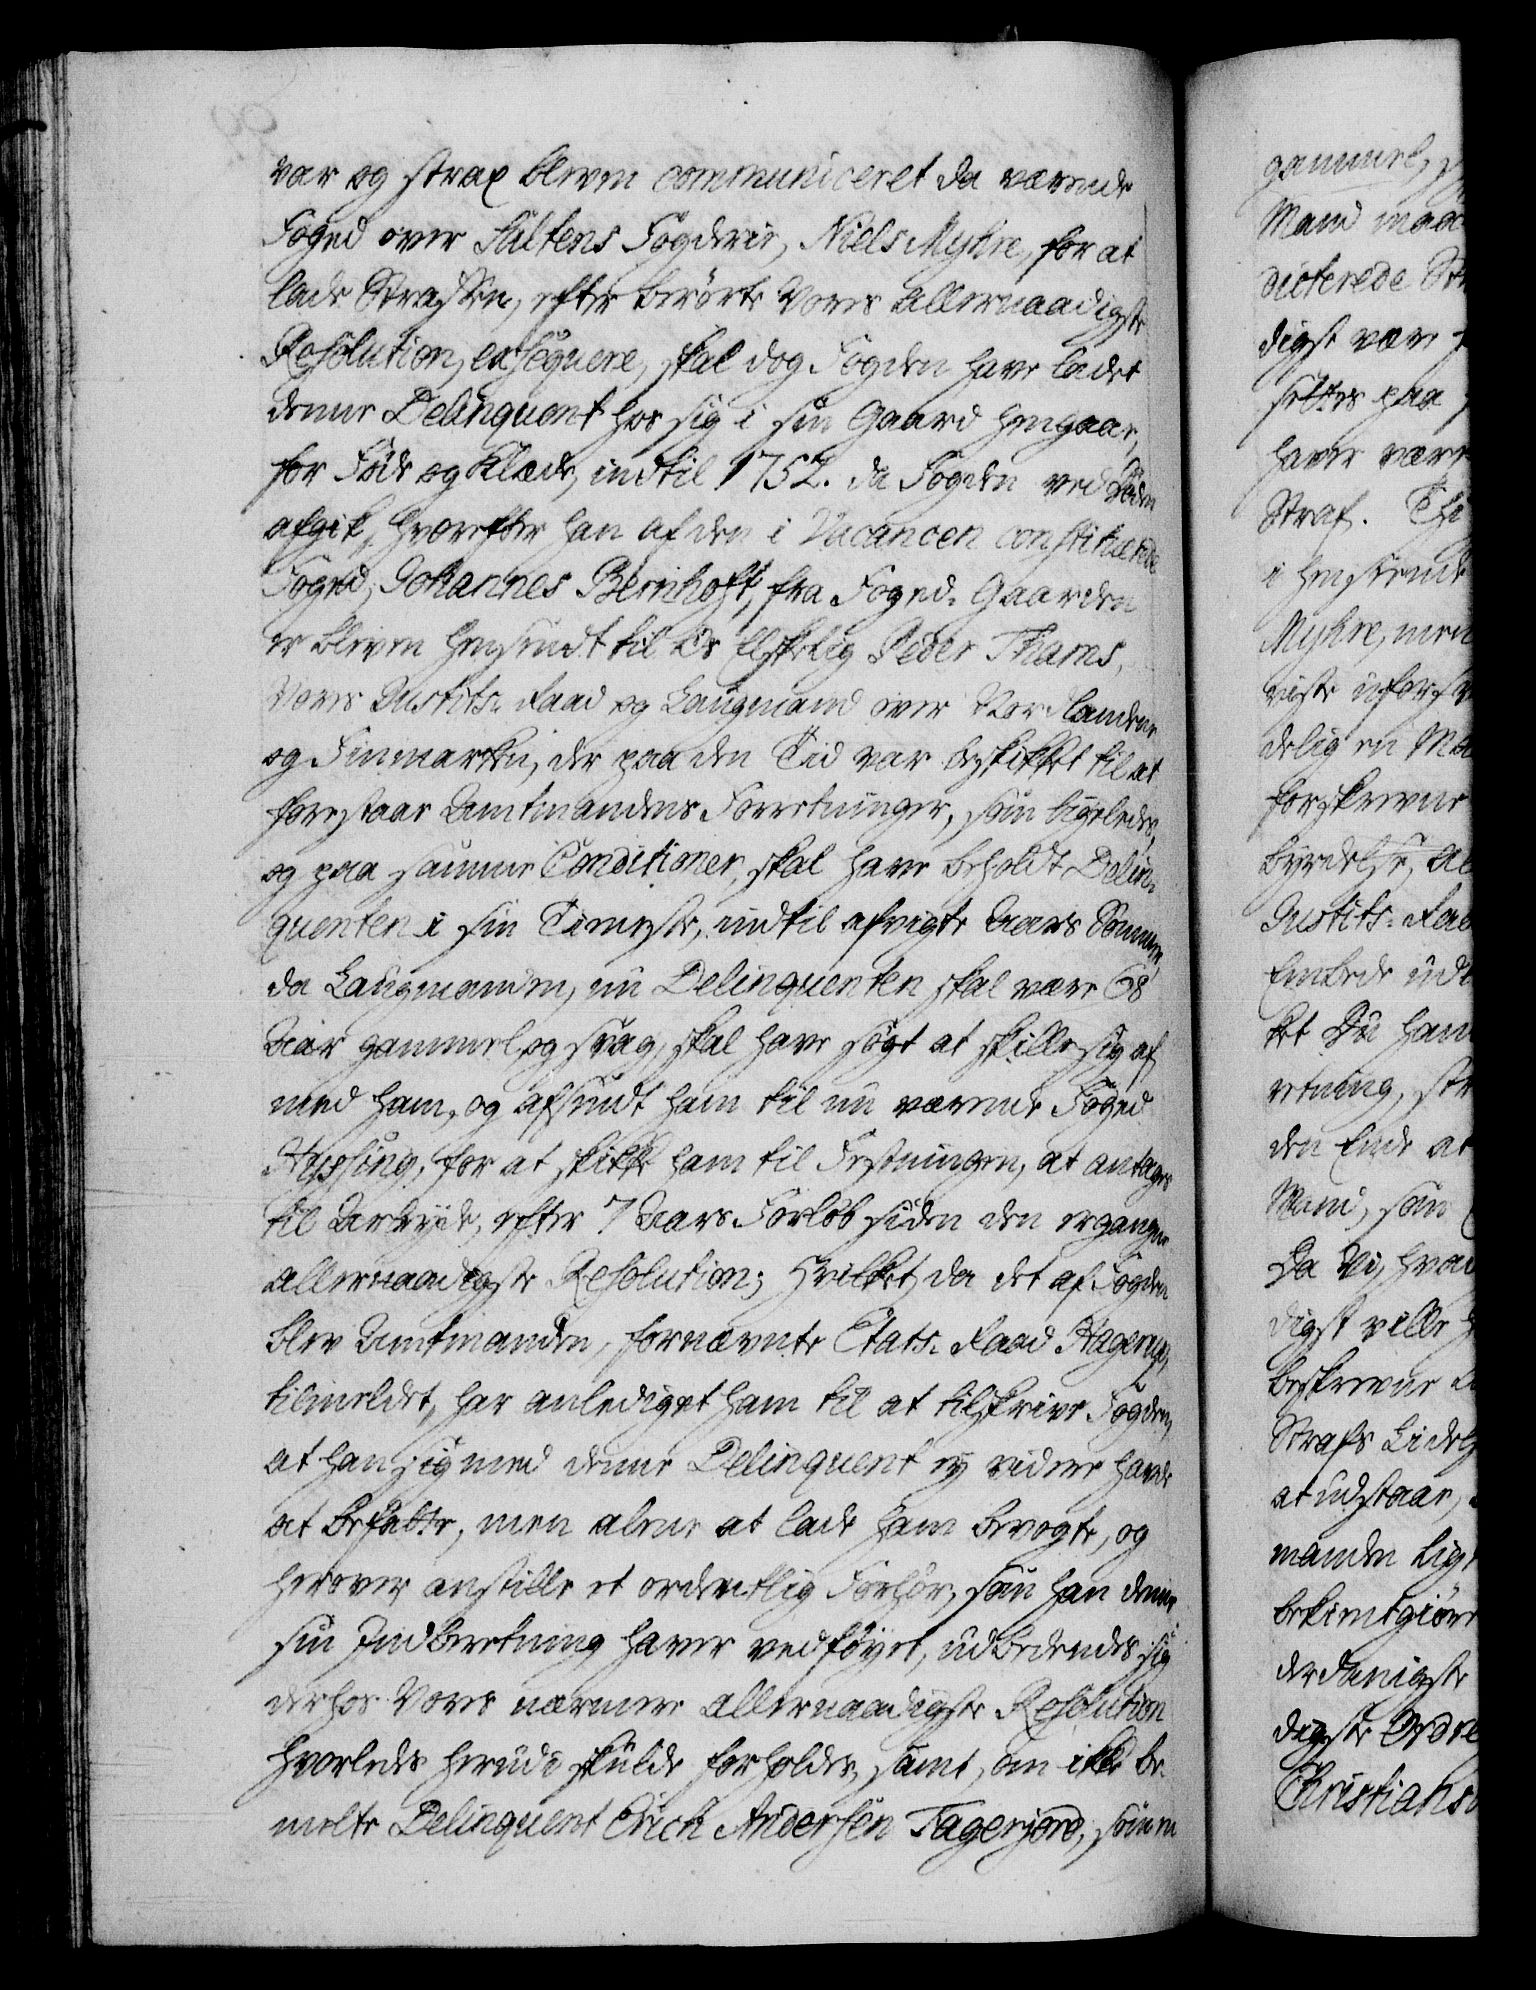 var og strax bleven communiceret da værende
Foged over Saltens Fogderie, Niels Myhre, for at
lade Straffen, efter berørte Vores allernaadigste
Resolution, exseqvere, skal dog Fogden have ladet
denne Delinquent hos sig i sin Gaard hengaae,
for Føde og Klæde, indtil 1752. da Fogden ved Døden
afgik, hvorefter han af den i Vacancen constituerede
Foged, Johannes Bernhoft, fra Foged-Gaarden
er bleven hensendt til Os Elskelig Peder Thams,
Vores Justits-Raad og Laugmand over Nordlandene
og Finmarken, der paa den Tid var beskikket til at
forestaae Amtmandens Forretninger, som ligeledes,
og paa samme Conditioner, skal have beholdt Delin-
quenten i sin Tieneste, indtil afvigte Aars Sommer,
da Laugmanden, nu Delinquenten skal være 68
Aar gammel og svag, skal have søgt at skille sig af
med ham, og afsendt ham til nu værende Foged
Hyssing, for at skikke ham til Festningen, at antages
til Arbeyde, efter 7 Aars Forløb siden den ergangne
allernaadigste Resolution; Hvilket, da det af Fogden
blev Amtmanden, fornævnte Etats-Raad Hagerup,
tilmeldet, har anlediget ham til at tilskrive Fogden,
at han sig med denne Delinquent ey videre havde
at befatte, men alene at lade ham bevogte, og
herover anstille et ordentlig Forhør, som han denne
sin Indberetning haver vedføyet, udbedendes sig
derhos Vores nærmere allernaadigste Resolution
hvorledes herudi skulde forholdes, samt, om ikke be-
melte Delinquent Erich Andersen Fagerjord, som en
gammel,
Mand maa
dicterede
digst være
settes paa
haver være
Straf. Thi
i henseende
Myhre, men
viste uforsv
delig en
forskrevne
byrdelse,
Justits-Raa
Embede ud
ket Du ham
retning,
den Ende at
Mand, som
Da Vi, hvad
digst ville
beskrevne
Strafs Lidelse
at udstaae,
manden lig
bekiendtgiøre
derdanigste
digste Ordre
Christiansb